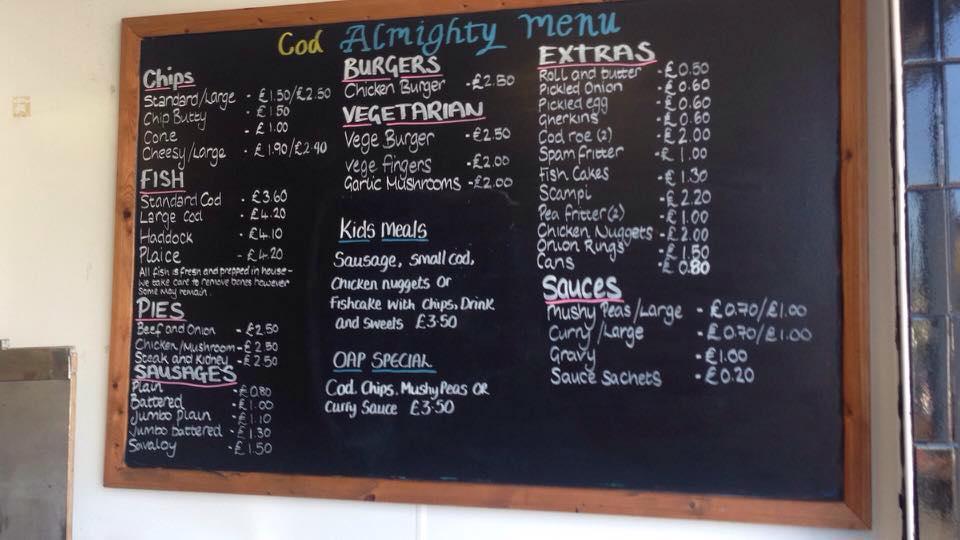 Cod Almighty Menu
Chips
Standard/Large - £1.50/£2.50
Chip Butty - £1.50
Cone - £1.00
Cheesy/Large - £1.90/£2.40
FISH
Standard Cod - £3.60
Large Cod - £4.20
Haddock - £4.10
Plaice - £4.20
All fish is fresh and prepped in house -
We take care to remove bones however
some may remain.
PIES
Beef and Onion - £2.50
Chicken/Mushroom - £2.50
Steak and Kidney - £2.50
SAUSAGES
Plain - £0.80
Battered - £1.00
Jumbo Plain - £1.10
Jumbo battered - £1.30
Savaloy - £1.50
BURGERS
Chicken Burger - £2.50
VEGETARIAN
Vege Burger - £2.50
vege fingers - £2.00
Garlic Mushrooms - £2.00
Kids Meals
Sausage, small cod,
Chicken nuggets or
Fishcake with Chips, Drink
and sweets £3.50
OAP SPECIAL
Cod, Chips, Mushy Peas OR
Curry Sauce £3.50
EXTRAS
Roll and butter - £0.50
Pickled Onion - £0.60
Pickled egg - £0.60
Gherkins - £0.60
Cod roe (2) - £2.00
Spam Fritter - £1.00
Fish Cakes - £1.30
Scampi - £2.20
Pea fritter (2) - £1.00
Chicken Nuggets - £2.00
Onion Rings - £1.50
Cans - £0.80
Sauces
Mushy Peas/Large - £0.70/£1.00
Curry/Large - £0.70/£1.00
Gravy - £1.00
Sauce Sachets - £0.20